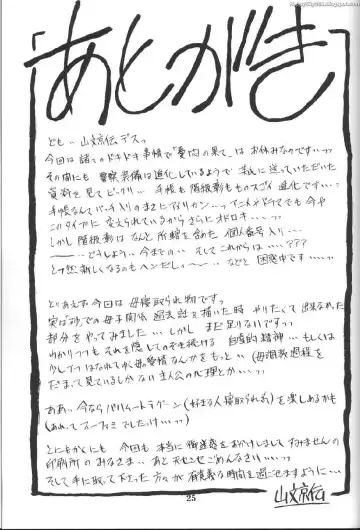 「あとがき」
ども～山文京伝デスっ
今回は諸々のドキドキ事情で「愛肉の果て」はお休みなのです…ッッ
その間にも 警察装備は進化しているようで 私に送っていただいた
資料を見てビックリ… 手帳も階級章もものスゴイ進化です…
手帳なんてバッチ入りのまさにアメリカン… インドメイドラマでも今や
このタイプに変えられているからさらにオドロキで…ッッ
しかし階級章はなんと所轄を含めた個人番号入り…
～どうしよう 今までの… そしてこれからは…???
と突然新しくなるのもヘンだし～ などと困惑中です…ッッ
とりあえず今回は 母寝取られ物ですっ
実は の母子関係 過去話を描いた時 やりたくて出来なかった
部分をやってみました…しかし まだ足りないですッッ
わかりつつも それを隠してのぞき続ける 自虐的精神… もしくは
少しづつはなれてゆく母の愛情なんかをもっと (母調教過程を
だまって見ているしかない主人公の心理とか…ッッ
ああ、今ならバハムートラグーン(好きな人寝取られ系)を楽しめるかも
(あれってスーファミでしたけ…ッッ)
とにもかくにも 今回も本当に御迷惑をおかけしまして すみませんの
印刷所のみなさま… あと天センセごめんなさい…ッッ
そして手に取って下さった方々が有意義な時間を過ごせますように…
山文京伝
25